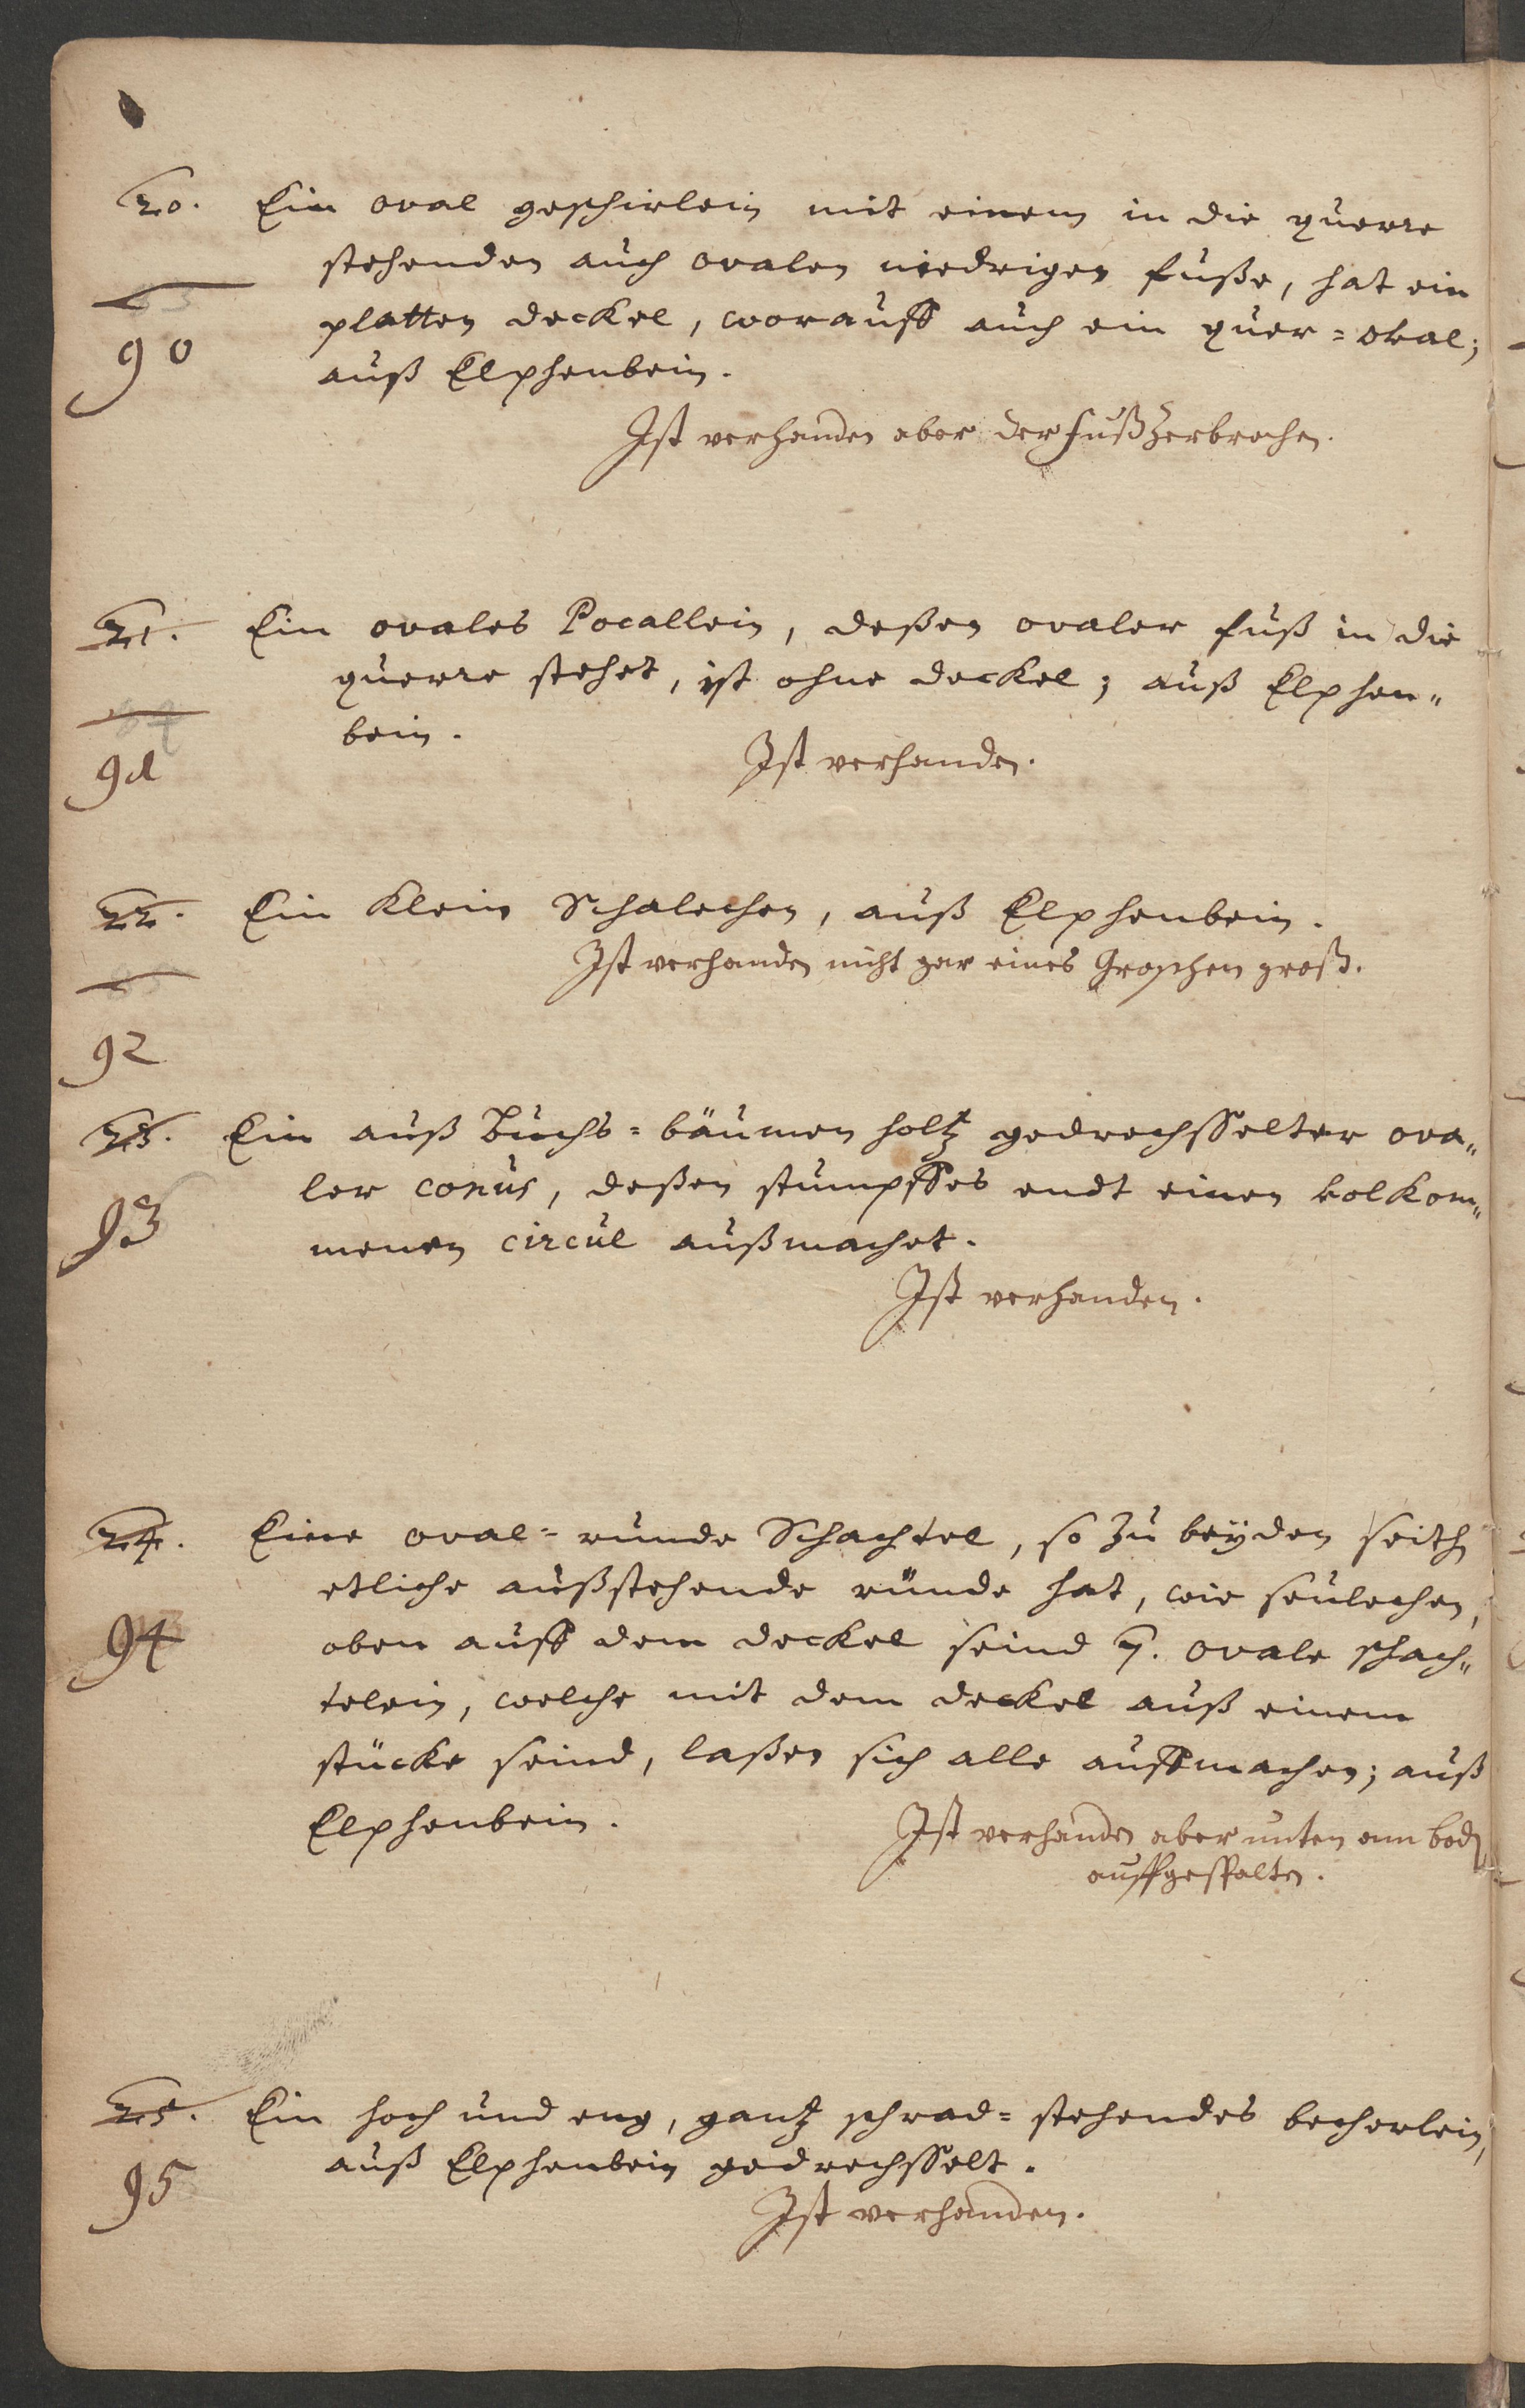 20. Ein oval geschirlein mit einem in die querre
stehenden auch ovalen niedrigen fuße, hat ein
90 platten deckel, worauff auch ein quer = oval;
auß Elphenbein.
Ist verhanden aber der fuß zerbrochen.
21. Ein ovales Pocallein, deßen ovaler fuß in die
querre stehet, ist ohne deckel; auß Elphen„
bein.
91 Ist verhanden.
22. Ein klein Schalechen, auß Elphenbein.
Ist verhanden nicht gar eines Groschen groß.
92
23. Ein auß Buchs = bäumen holtz gedrechsselter ova„
93 ler conus, deßen stumpffes endt einen volkom„
menen circul außmachet.
Ist verhanden.
24. Eine oval = runde Schachtel, so zu beyden seithen
etliche außstehende ründe hat, wie seulechen,
94 oben auff dem deckel seind 7. ovale schach„
telein, welche mit dem deckel auß einem
stücke seind, laßen sich alle auffmachen; auß
Elphenbein.
Ist verhanden aber unten am boden
auffgespalten.
25. Ein hoch und eng, gantz schrad = stehendes becherlein,
95 auß Elphenbein gedrechsselt.
Ist verhanden.